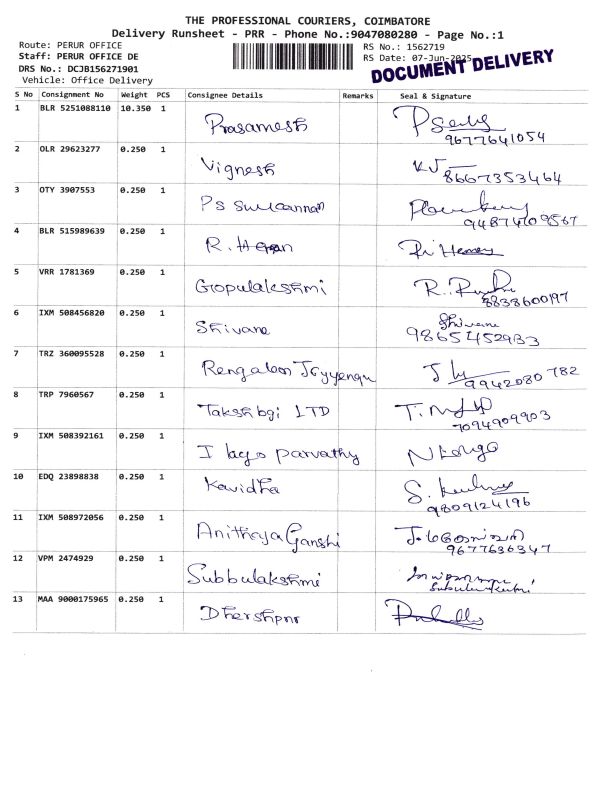 THE PROFESSIONAL COURIERS, COIMBATORE
Delivery Runsheet - PRR - Phone No.:9047080280 - Page No.:1
Route: PERUR OFFICE
RS No.: 1562719
Staff: PERUR OFFICE DE
RS Date: 07-Jun-2025
DRS No.: DCJB156271901
Vehicle: Office Delivery
DOCUMENT DELIVERY
S No Consignment No Weight PCS Consignee Details Remarks Seal & Signature
1 BLR 5251088110 10.350 1 Prasamesh
9677641054
2 OLR 29623277 0.250 1 Vignesh KV
8667353464
3 OTY 3907553 0.250 1 PS
9487409567
4 BLR 515989639 0.250 1 R.
5 VRR 1781369 0.250 1 Gropulakshmi R.
8838600197
6 IXM 508456820 0.250 1 Shivane Shivane
9865452933
7 TRZ 360095528 0.250 1 J
9942080782
8 TRP 7960567 0.250 1 LTD T.
7094909903
9 IXM 508392161 0.250 1 I parvathy
10 EDQ 23898838 0.250 1 Kavidha S.
9809124196
11 IXM 508972056 0.250 1 J.
9677636347
12 VPM 2474929 0.250 1 Subbulakshmi
13 MAA 9000175965 0.250 1